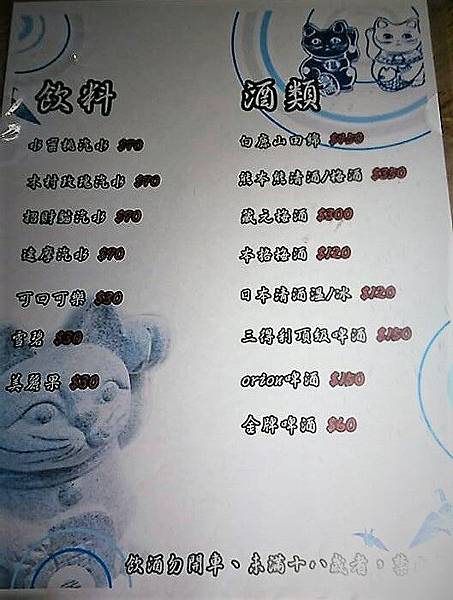 飲料
水蜜桃汽水 $70
木村玫瑰汽水 $70
招財貓汽水 $70
達摩汽水 $70
可口可樂 $30
雪碧 $30
美粒果 $30
酒類
白鹿山田錦
熊本熊清酒/梅酒 $350
藏元梅酒 $300
本格梅酒 $120
日本清酒溫/冰 $120
三得利頂級啤酒 $150
orion啤酒 $150
金牌啤酒 $60
飲酒勿開車、未滿十八歲者,禁